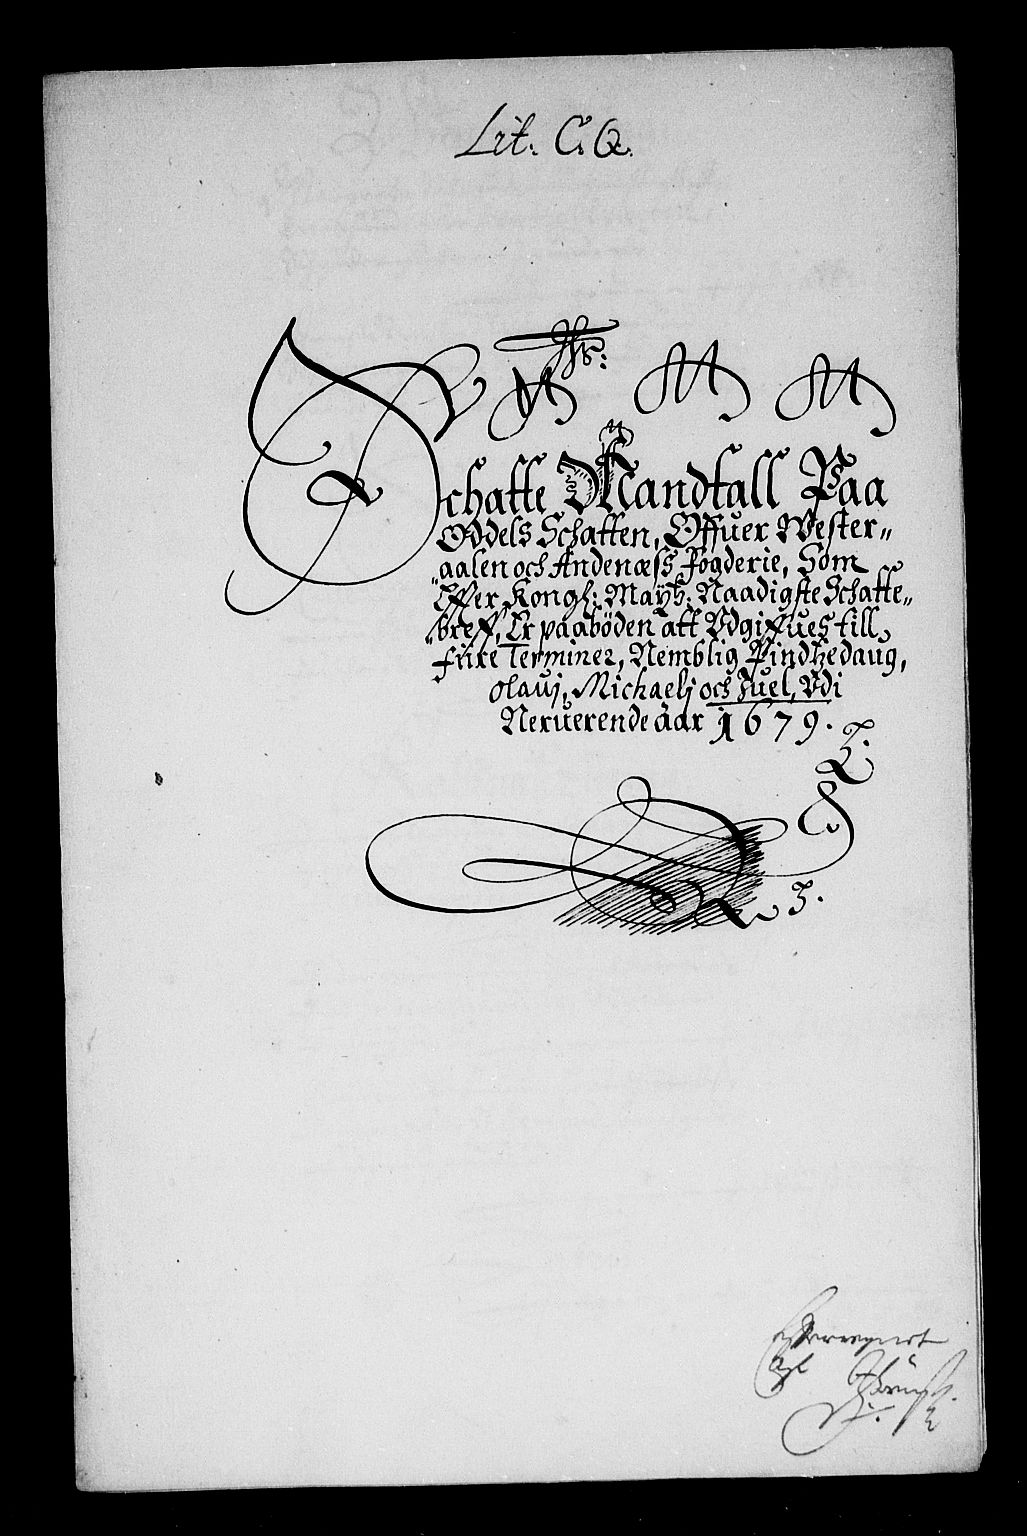 Lit. C. Q.
Jhs:
Schatte Mandtall Paa
Oddels Schatten, Offuer Wester„
„aalen och Andenæss Fogderie, Som
Effter Kongl: Mayts: Naadigste Schatte„
„breff, Er paaböden att Vdgiffues till
fiire Terminer, Nemblig Pindtzedaug,
Olauj, Michaelj och Juel, Vdi
Neruerende aar 1679.
3.